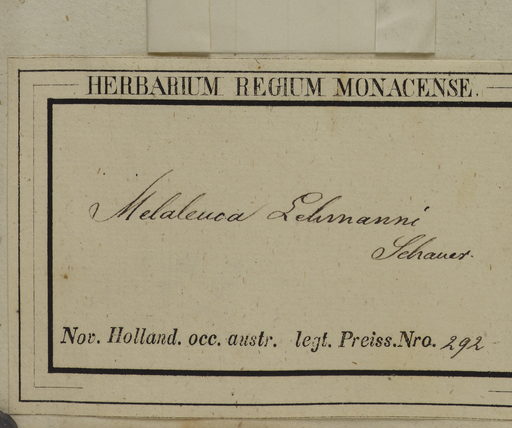 HERBARIUM REGIUM MONACENSE.
Melaleuca Lehmanni
Schauer.
Nov. Holland. occ. austr. legt. Preiss. Nro. 292